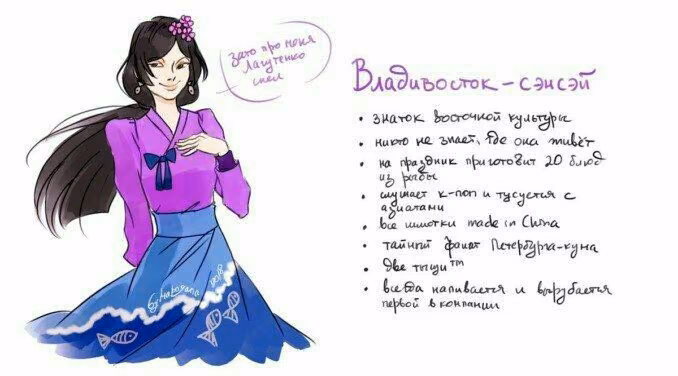 Зато про меня
Лагутенко
спел
Владивосток-сэнсэй
• знаток восточной культуры
• никто не знает, где она живёт
• на праздник приготовит 20 блюд
из рыбы
• слушает к-поп и тусуется с
азиатами
• все шмотки made in China
• тайный фанат Петербурга-куна
• две тыщи™
• всегда напивается и вырубается
первой в компании